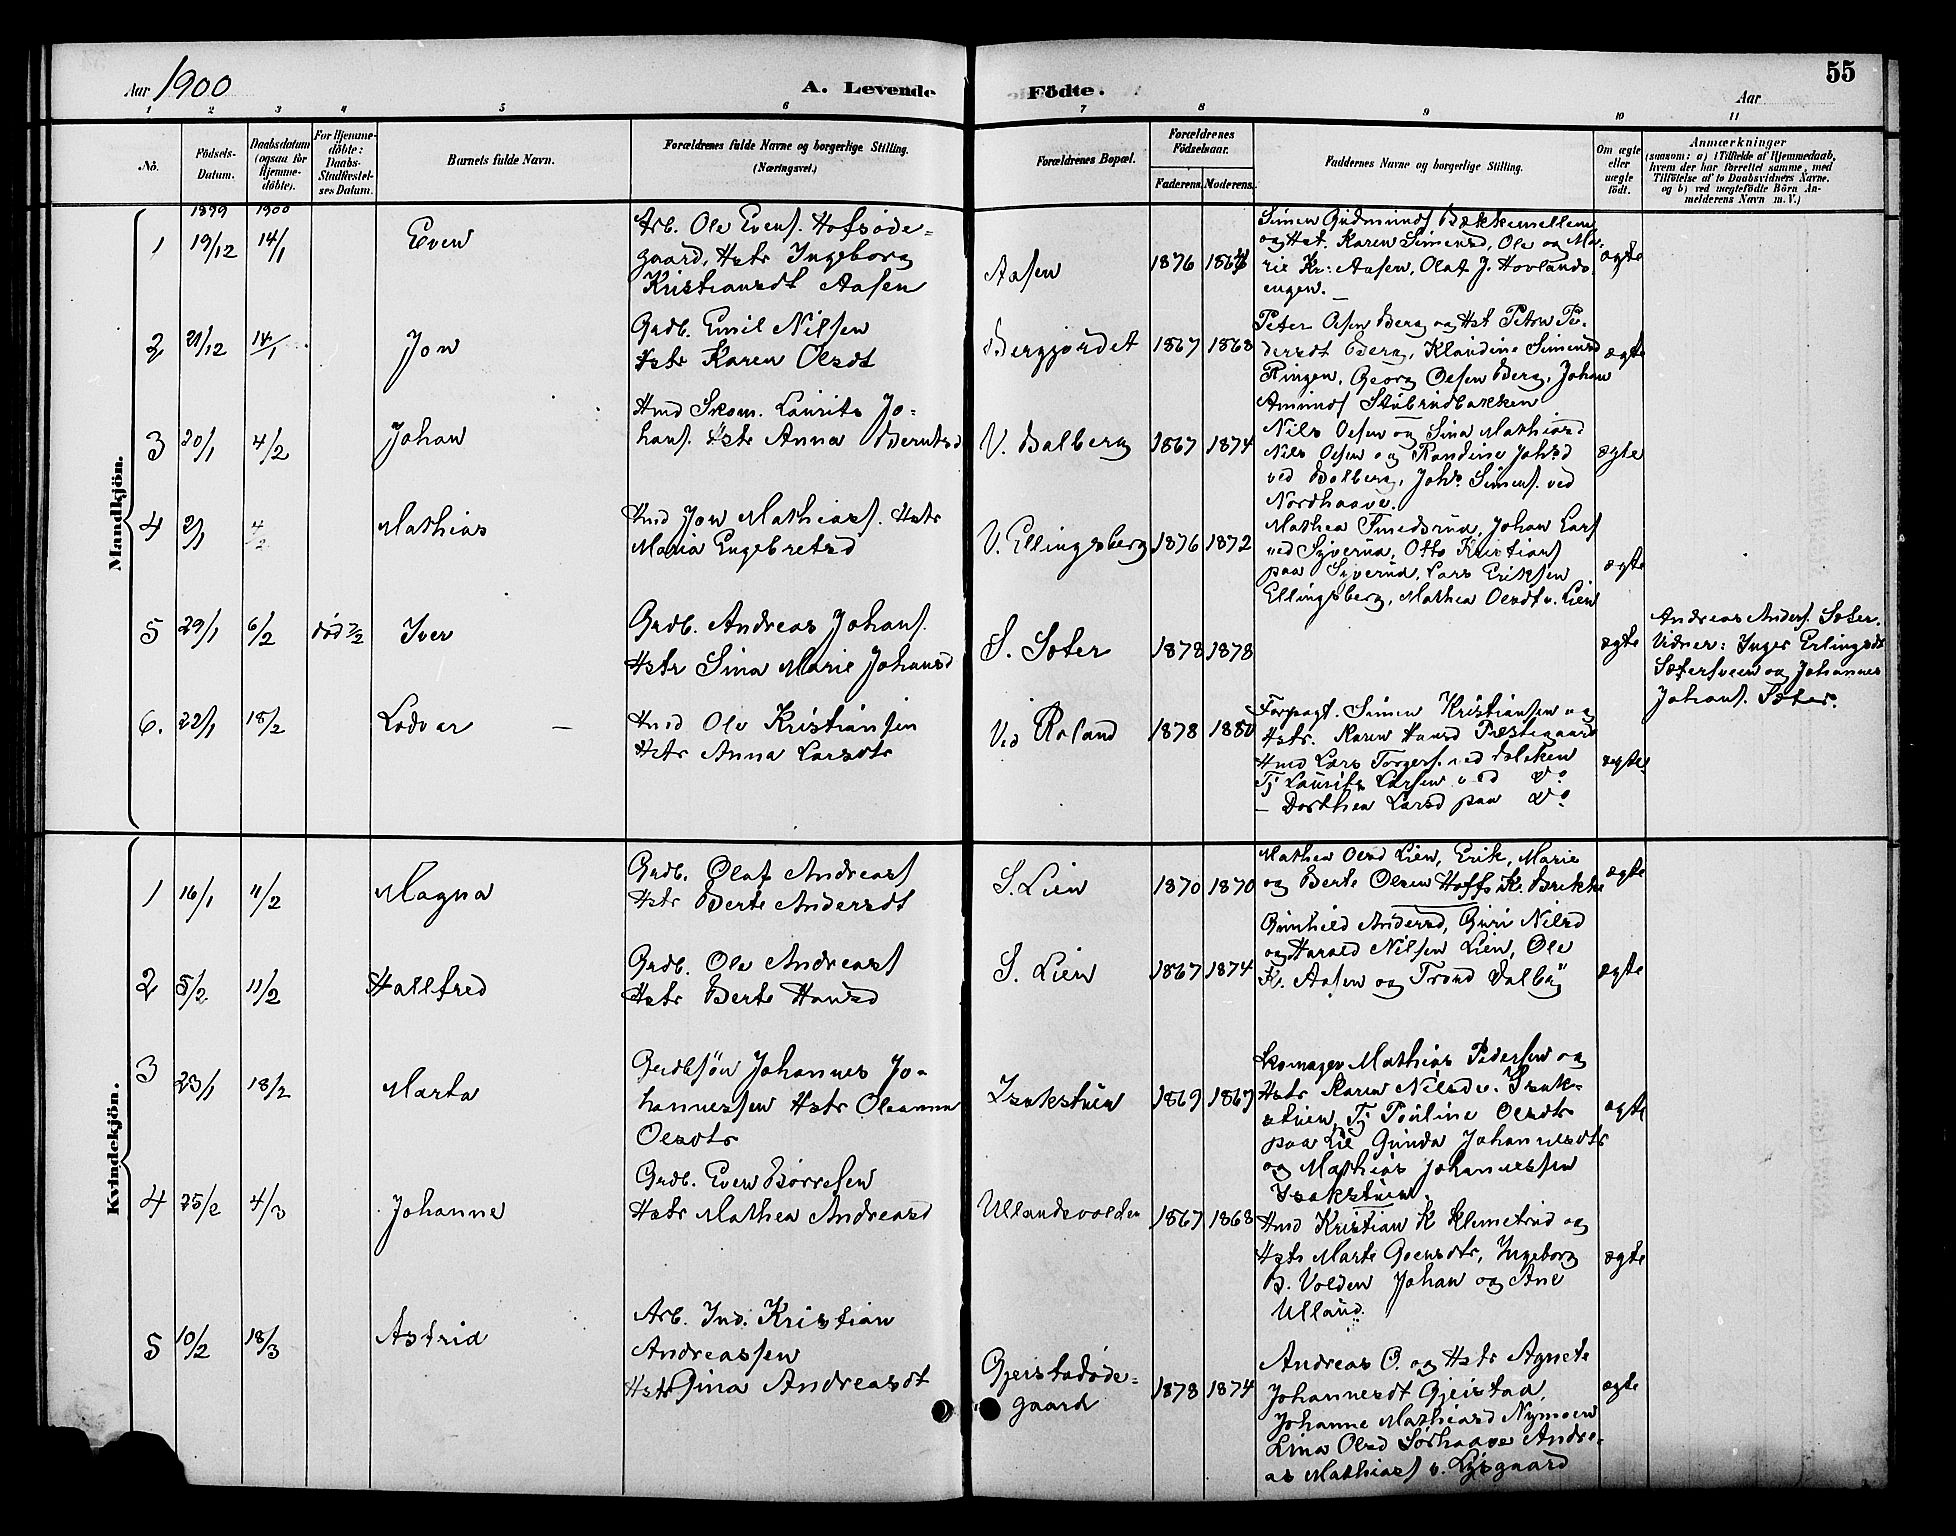 Aar 1900
A. Levende Födte.
55
Aar
1 2 3 4 5 6 7 8 9 10 11
No.
Födsels-Datum.
Daabsdatum (ogsaa for Hjemme-döbte).
For Hjemme-döbte: Daabs-Stadfæstel-ses Datum.
Barnets fulde Navn.
Forældrenes fulde Navne og borgerlige Stilling.
(Næringsvei.)
Forældrenes Bopæl.
Forældrenes Födselsaar.
Faderens. Moderens.
Faddernes Navne og borgerlige Stilling.
Om ægte eller uægte födt.
Anmærkninger
(saasom: a) i Tilfælde af Hjemmedaab,
hvem der har forrettet samme, med
Tilföielse af to Daabsvidners Navne,
og b) ved uægtefödte Börn An-
melderens Navn m. V.)
Mandkjön.
1899 1900
1 19/12 14/1 Even
Arb. Ole Evens. Hofsöde-
gaard, Hstr Ingeborg
Kristiansdt Aasen
Aasen 1876 1864
Simen Gudmunds Bækkemellem
og Hst. Karen Simensd, Ole og Ma-
rie Kr. Aasen, Olaf J. Hovlands
engen.
ægte
2 21/12 14/1 Jon
Grdb. Emil Nilsen
Hstr Karen Olsdt
Bergjordet 1867 1868
Peter Olsen Berg og Hst Peton Pe-
dersdt Berg, Klaudine Simensd
Ringen, Georg Olsen Berg, Johan
Amunds Stubrudbakken
ægte
3 20/1 4/2 Johan
Hmd Skom. Laurits Jo-
hans. Hstr Anna Berntsd
V. Balberg 1867 1874
Nils Olsen og Sina Mathiasd
Nils Olsen og Randine Johsd
ved Balberg, Johs. Simens. ved
Nordhaave.
ægte
4 2/1 4/2 Mathias
Hmd Jon Mathiass. Hstr
Maria Engebretsd
V. Ellingsberg 1876 1872
Mathea Smedsrud, Johan Lars
ved Syverud, Otto Kristians
paa Syverud, Lars Eriksen
Ellingsberg, Mathea Olsdt v. Lien
ægte
5 29/1 6/2 död 7/2 Iver
Grdb. Andreas Johans.
Hstr Sina Marie Johansd
S. Sæter 1878 1878
ægte
Andreas Anders. Sæter.
Vidner: Inger Erlingsdt
Sætersveen og Johannes
Johans. Sæter.
6. 22/1 18/2 Lodvar –
Hmd Ole Kristiansen
Hstr Anna Larsdtr
Ved Roland 1878 1880
Forpagt. Simen Kristiansen og
Hstr. Karen Hansd Præstegaard
Hmd Lars Torgers. ved Daleken
Tj Laurits Larsen ved Do
– Dorthea Larsd paa Do
ægte
Kvindekjön.
1 16/1 11/2 Magna
Grdb. Olaf Andreass
Hstr Berte Andersdt
S. Lien 1870 1870
Mathea Olsd Lien, Erik, Marie
og Berte Olsen Hoffs K. Brekke
ægte
2 5/2 11/2 Hallfred
Grdb. Ole Andreass
Hstr Berte Hansd
S. Lien 1867 1874
Gunhild Andersd, Guri Nilsd
og Harald Nilsen Lien, Ole
K. Aasen og Trond Dalby
ægte
3 23/1 18/2 Marta
Grdbsön Johannes Jo-
hannessen Hstr Oleanna
Olsdtr
Isakstuen 1869 1867
Skomager Mathias Pedersen og
Hstr Karen Nilsd v. Isak-
stuen, Tj Pauline Olsdtr
paa Lie Gunda Johannesdtr
og Mathias Johannessen
Isakstuen.
ægte
4 25/2 4/3 Johanne
Grdb. Even Börresen
Hstr Mathea Andreasd
Ullandsvolden 1867 1868
Hmd Kristian K Klemetrud og
Hstr Marte Goensdtr, Ingeborg
B. Volden Johan og Ane
Ulland.
ægte
5 10/2 18/3 Astrid
Arb. Ind. Kristian
Andreassen
Hstr Gina Andreasdt
Gjeistadöde-
gaard 1878 1874
Andreas O. og Hstr Agnete
Johannesdt Gjeistad,
Johanne Mathiasd Nymoen
Lina Olsd Sörhaave Andre-
as Mathiass v. Lysgaard
ægte